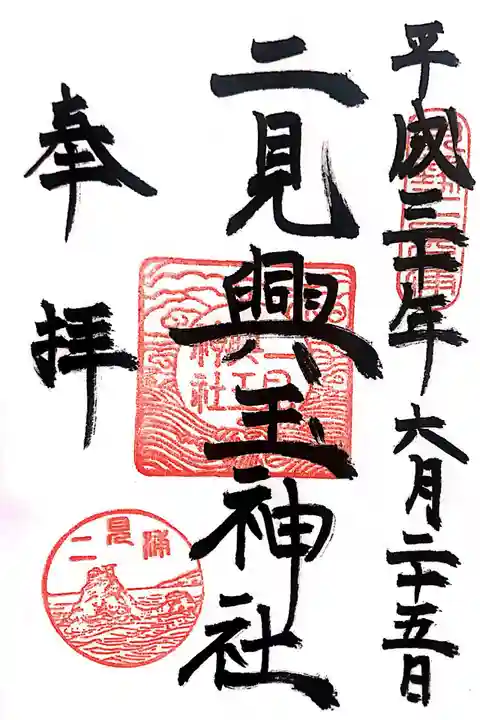 平成三十年六月二十五日
二見興玉神社
奉拝
二見浦
二見興玉神社